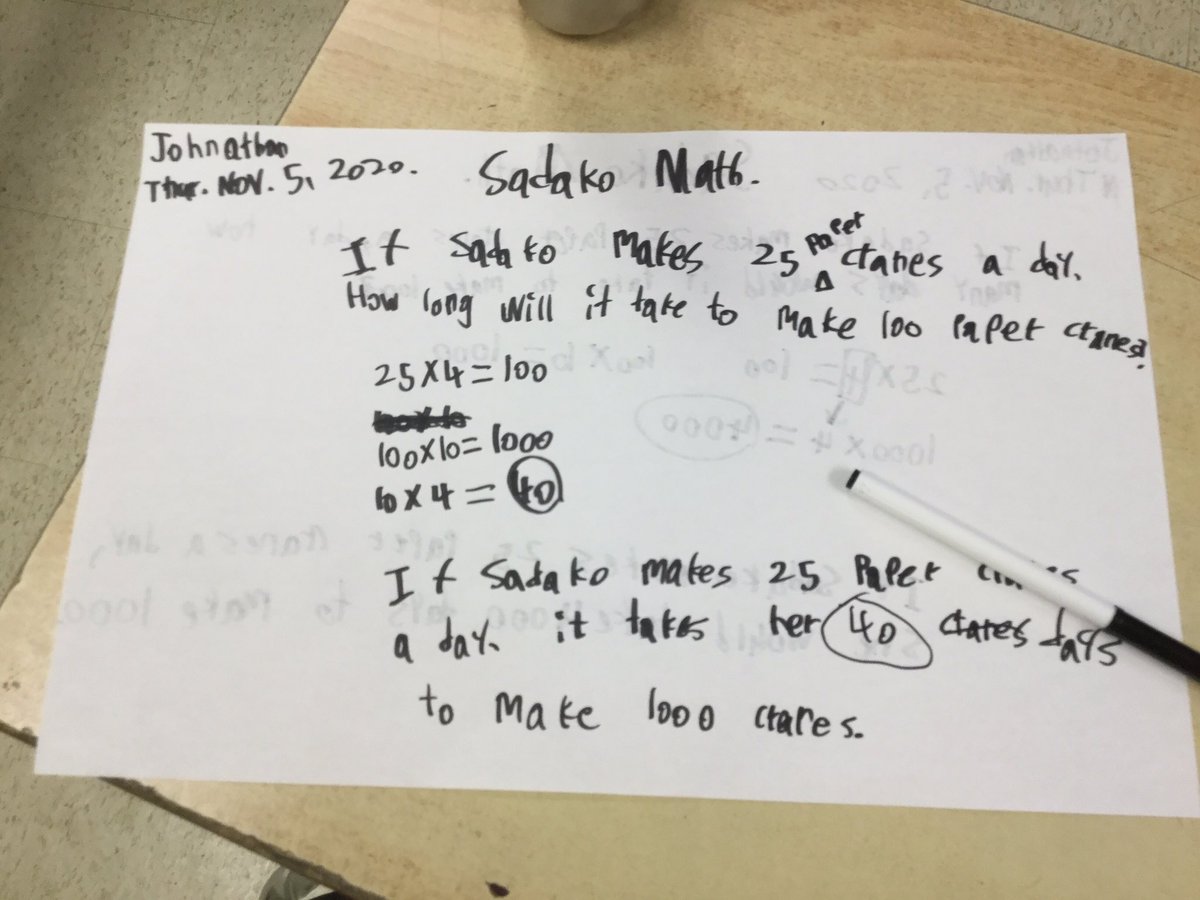 Johnathan
Thur. NOV. 5, 2020.
Sadako Math.
If Sadako makes 25 paper cranes a day.
How long will it take to make 100 paper cranes?
25×4=100
100×10=1000
10×4=40
If Sadako makes 25 paper cranes
a day. it takes her 40 cranes days
to make 1000 cranes.